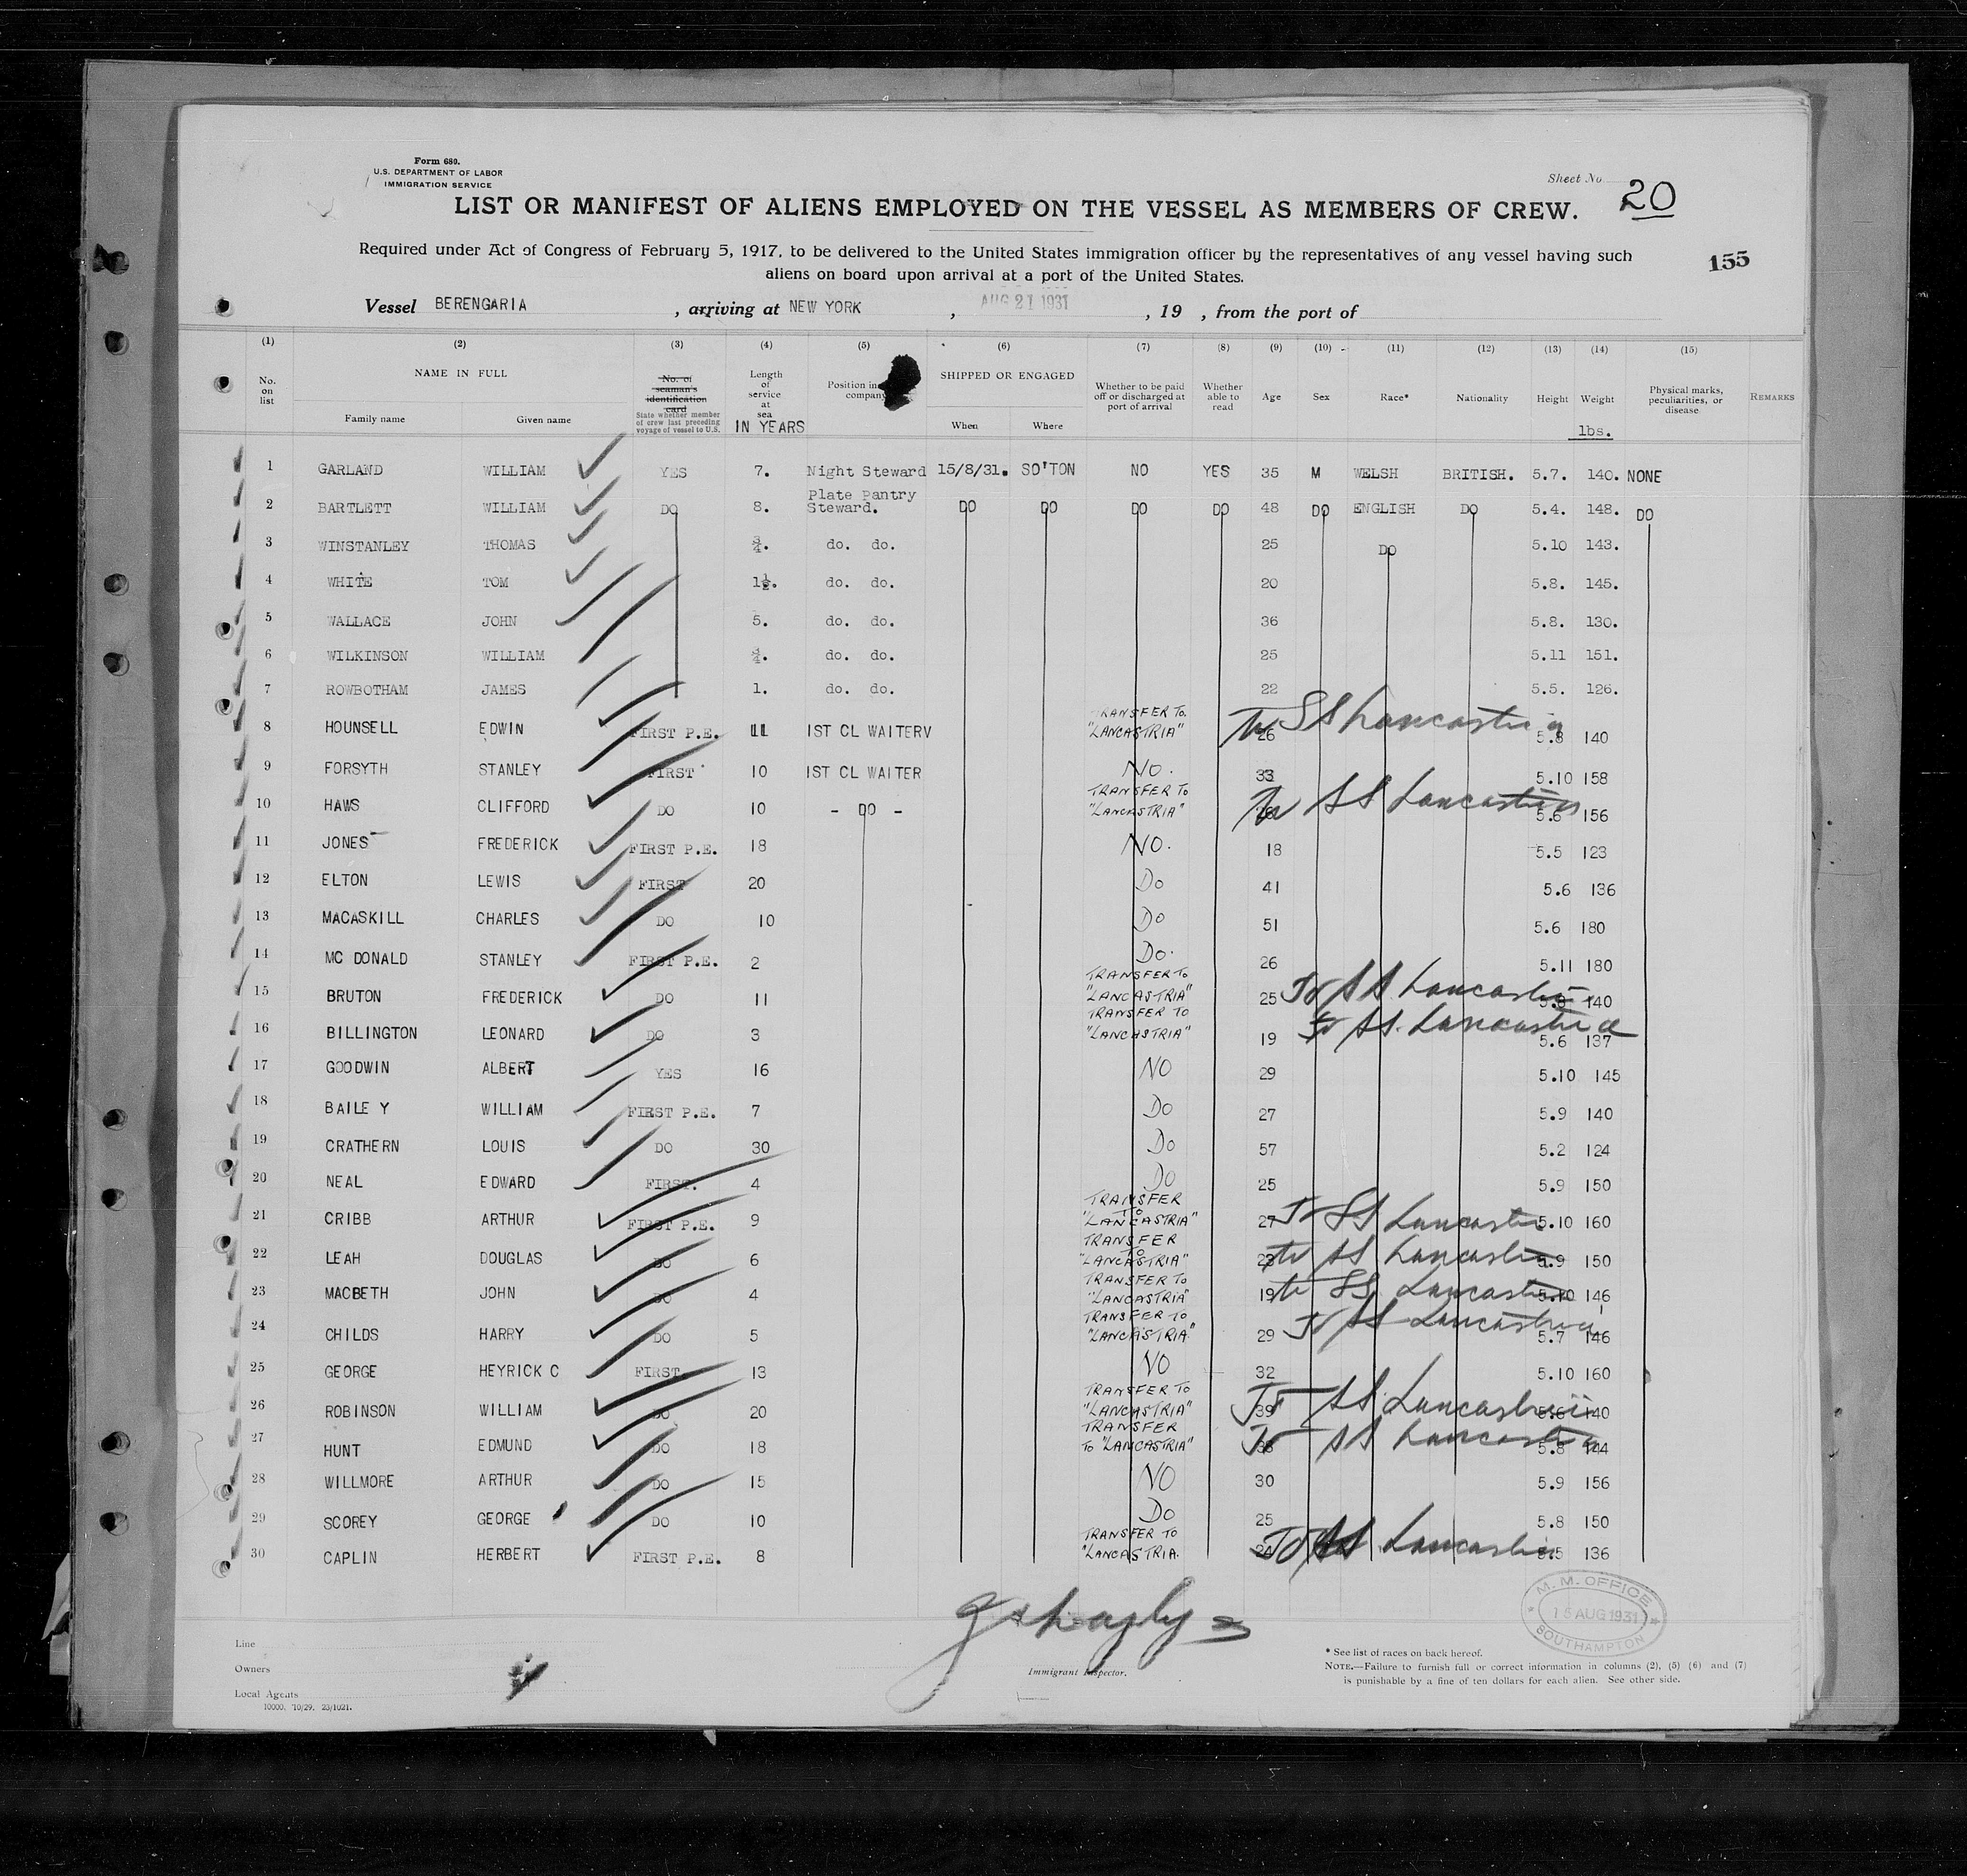 Form 680.
U.S. DEPARTMENT OF LABOR
IMMIGRATION SERVICE
Sheet No. 20
LIST OR MANIFEST OF ALIENS EMPLOYED ON THE VESSEL AS MEMBERS OF CREW.
Required under Act of Congress of February 5, 1917, to be delivered to the United States immigration officer by the representatives of any vessel having such
aliens on board upon arrival at a port of the United States.
155
Vessel BERENGARIA, arriving at NEW YORK, AUG 21 1931, 19 , from the port of
(1) (2) (3) (4) (5) (6) (7) (8) (9) (10) (11) (12) (13) (14) (15)
No. on list NAME IN FULL Family name Given name No. of seaman's identification card State whether member of crew last preceding voyage of vessel to U.S. Length of service at sea IN YEARS Position in company SHIPPED OR ENGAGED When Where Whether to be paid off or discharged at port of arrival Whether able to read Age Sex Race* Nationality Height Weight lbs. Physical marks, peculiarities, or disease REMARKS
1 GARLAND WILLIAM YES 7. Night Steward 15/8/31. SO'TON NO YES 35 M WELSH BRITISH. 5.7. 140. NONE
2 BARTLETT WILLIAM DO 8. Plate Pantry Steward. DO DO DO DO 48 DO ENGLISH DO 5.4. 148. DO
3 WINSTANLEY THOMAS ¾. do. do. 25 DO 5.10 143.
4 WHITE TOM 1½. do. do. 20 5.8. 145.
5 WALLACE JOHN 5. do. do. 36 5.8. 130.
6 WILKINSON WILLIAM do. do. 25 5.11 151.
7 ROWBOTHAM JAMES 1. do. do. 22 5.5. 126.
8 HOUNSELL EDWIN FIRST P.E. 11 1ST CL WAITERV TRANSFER TO. "LANCASTRIA" 26 To SS Lancastria 5.8 140
9 FORSYTH STANLEY FIRST 10 1ST CL WAITER NO. 33 5.10 158
10 HAWS CLIFFORD DO 10 - DO - TRANSFER TO "LANCASTRIA" To SS Lancastria 5.6 156
11 JONES FREDERICK FIRST P.E. 18 NO. 18 5.5 123
12 ELTON LEWIS FIRST 20 DO 41 5.6 136
13 MACASKILL CHARLES DO 10 DO 51 5.6 180
14 MC DONALD STANLEY FIRST P.E. 2 DO. 26 5.11 180
15 BRUTON FREDERICK DO 11 TRANSFER TO "LANCASTRIA" 25 To SS Lancastria 140
16 BILLINGTON LEONARD DO 3 TRANSFER TO "LANCASTRIA" 19 To SS. Lancastria 5.6 137
17 GOODWIN ALBERT YES 16 NO 29 5.10 145
18 BAILEY WILLIAM FIRST P.E. 7 DO 27 5.9 140
19 CRATHERN LOUIS DO 30 DO 57 5.2 124
20 NEAL EDWARD FIRST. 4 DO 25 5.9 150
21 CRIBB ARTHUR FIRST P.E. 9 TRANSFER TO "LANCASTRIA" 27 To SS Lancastria 5.10 160
22 LEAH DOUGLAS DO 6 TRANSFER TO "LANCASTRIA" to SS Lancastria 5.9 150
23 MACBETH JOHN DO 4 TRANSFER TO "LANCASTRIA" 19 to SS Lancastria 5.10 146
24 CHILDS HARRY DO 5 TRANSFER TO "LANCASTRIA" 29 To SS Lancastria 5.7 146
25 GEORGE HEYRICK C FIRST 13 NO 32 5.10 160
26 ROBINSON WILLIAM DO 20 TRANSFER TO "LANCASTRIA" 39 To SS Lancastria 140
27 HUNT EDMUND DO 18 TRANSFER TO "LANCASTRIA" To SS Lancastria 5.8 144
28 WILLMORE ARTHUR DO 15 NO 30 5.9 156
29 SCOREY GEORGE DO 10 DO 25 5.8 150
30 CAPLIN HERBERT FIRST P.E. 8 TRANSFER TO "LANCASTRIA. 24 To SS Lancastria 136
M. M. OFFICE
15 AUG 1931
SOUTHAMPTON
Line
Owners
Local Agents
10000. 10/29. 23/1021.
Immigrant Inspector.
* See list of races on back hereof.
NOTE.—Failure to furnish full or correct information in columns (2), (5) (6) and (7)
is punishable by a fine of ten dollars for each alien. See other side.